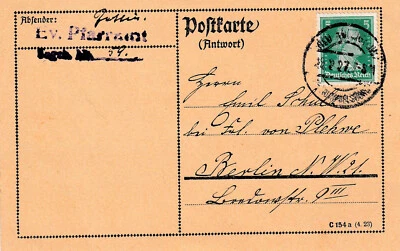 Absender:
Ev. Pfarramt
Postkarte
(Antwort)
Deutsches Reich
Herrn
Emil Schul
bei Frl. von Plehwe
Berlin N.W. 21.
Bredowstr. 9 III
C 154 a (4. 23)